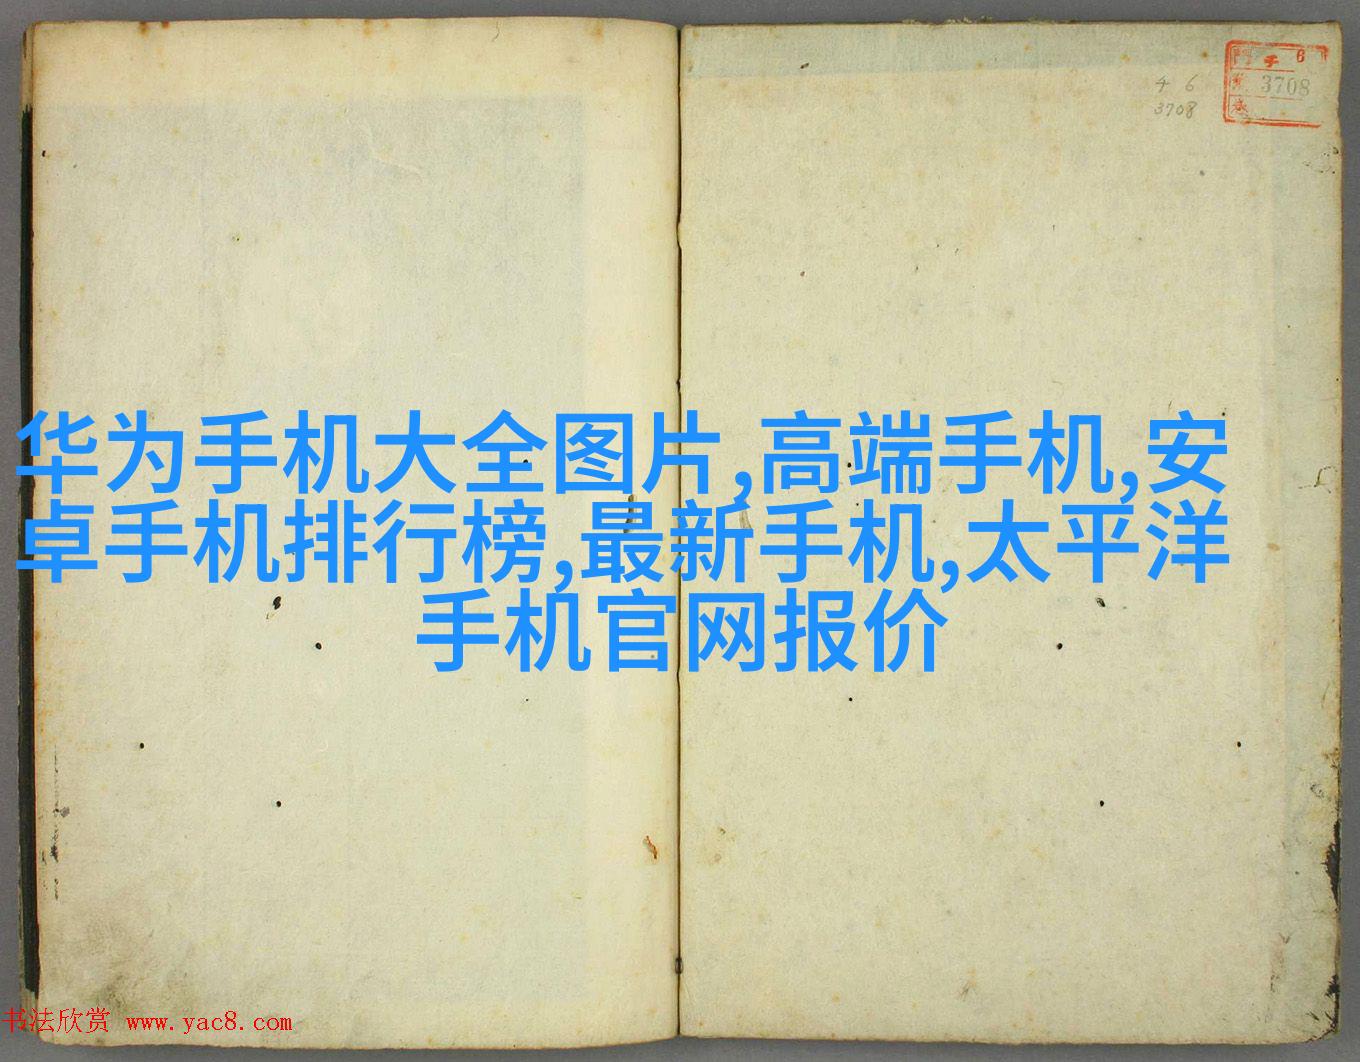 4 6
3708
門 子 6
3708
华为手机大全图片,高端手机,安
卓手机排行榜,最新手机,太平洋
手机官网报价
书法欣赏 www.yac8.com